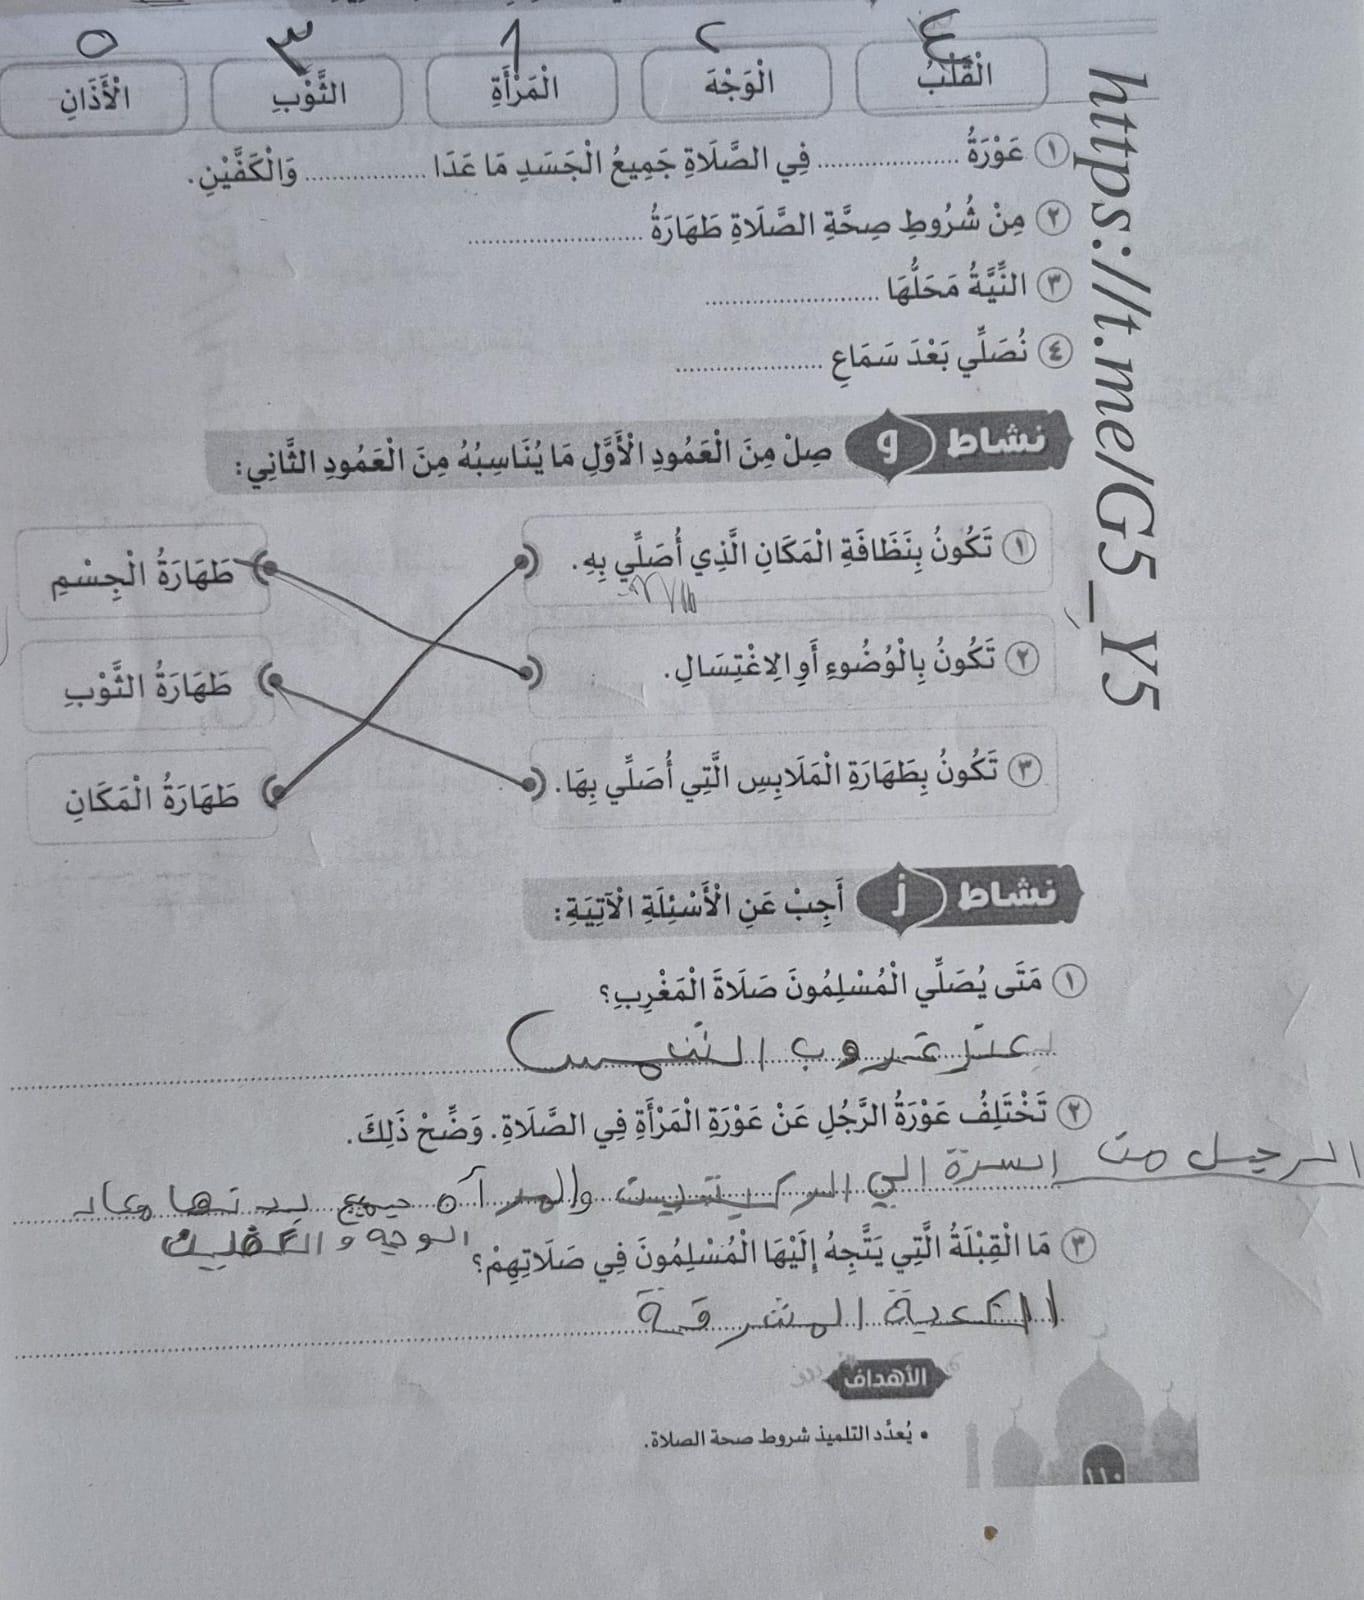 ٤ ٢ ١ ٣ ٥
الْقَلْبُ الْوَجْهَ الْمَرْأَةِ الثَّوْبِ الْأَذَانِ
https://t.me/G5_Y5
١ عَوْرَةُ .................... فِي الصَّلَاةِ جَمِيعُ الْجَسَدِ مَا عَدَا .................... وَالْكَفَّيْنِ.
٢ مِنْ شُرُوطِ صِحَّةِ الصَّلَاةِ طَهَارَةُ ....................
٣ النِّيَّةُ مَحَلُّهَا ....................
٤ نُصَلِّي بَعْدَ سَمَاعِ ....................
نشاط و صِلْ مِنَ الْعَمُودِ الْأَوَّلِ مَا يُنَاسِبُهُ مِنَ الْعَمُودِ الثَّانِي:
١ تَكُونُ بِنَظَافَةِ الْمَكَانِ الَّذِي أُصَلِّي بِهِ. طَهَارَةُ الْجِسْمِ
٢ تَكُونُ بِالْوُضُوءِ أَوِ الِاغْتِسَالِ. طَهَارَةُ الثَّوْبِ
٣ تَكُونُ بِطَهَارَةِ الْمَلَابِسِ الَّتِي أُصَلِّي بِهَا. طَهَارَةُ الْمَكَانِ
نشاط ز أَجِبْ عَنِ الْأَسْئِلَةِ الْآتِيَةِ:
١ مَتَى يُصَلِّي الْمُسْلِمُونَ صَلَاةَ الْمَغْرِبِ؟
عند غروب الشمس
٢ تَخْتَلِفُ عَوْرَةُ الرَّجُلِ عَنْ عَوْرَةِ الْمَرْأَةِ فِي الصَّلَاةِ. وَضِّحْ ذَلِكَ.
الرجل من السرة الي الركبتين والمرآه جميع بدنها
الوجه و الكفين
٣ مَا الْقِبْلَةُ الَّتِي يَتَّجِهُ إِلَيْهَا الْمُسْلِمُونَ فِي صَلَاتِهِمْ؟
الكعبة المشرفة
الأهداف
• يُعدِّد التلميذ شروط صحة الصلاة.
١١٠